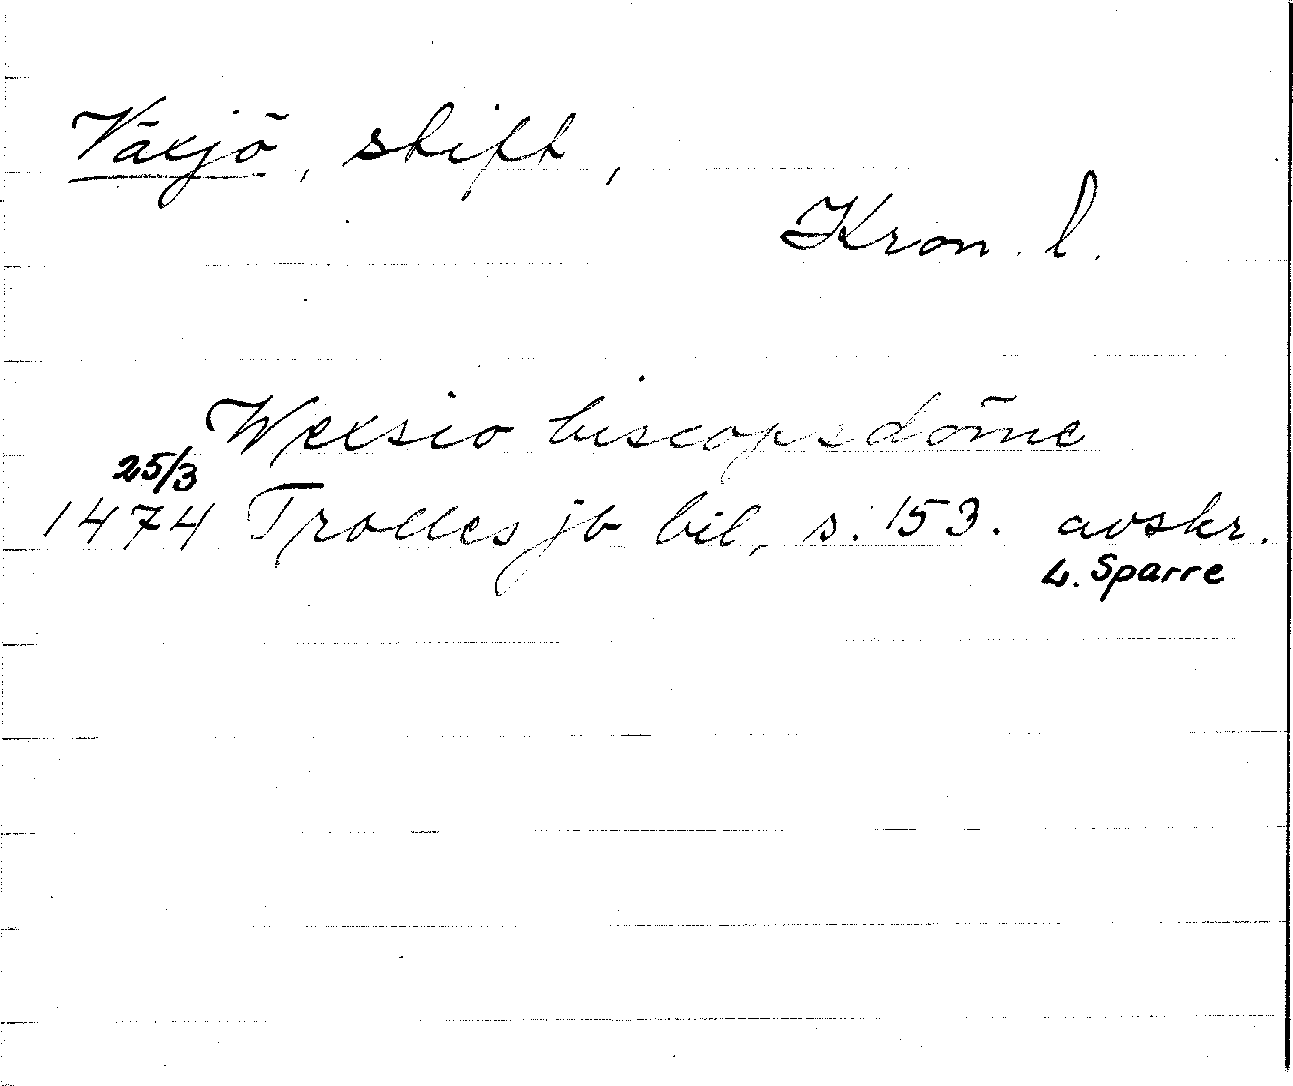 Växjö, stift,
Kron. l.
Wexsio biscopsdöme
25/3
1474 Trolles jb bil, s. 153. avskr.
L. Sparre